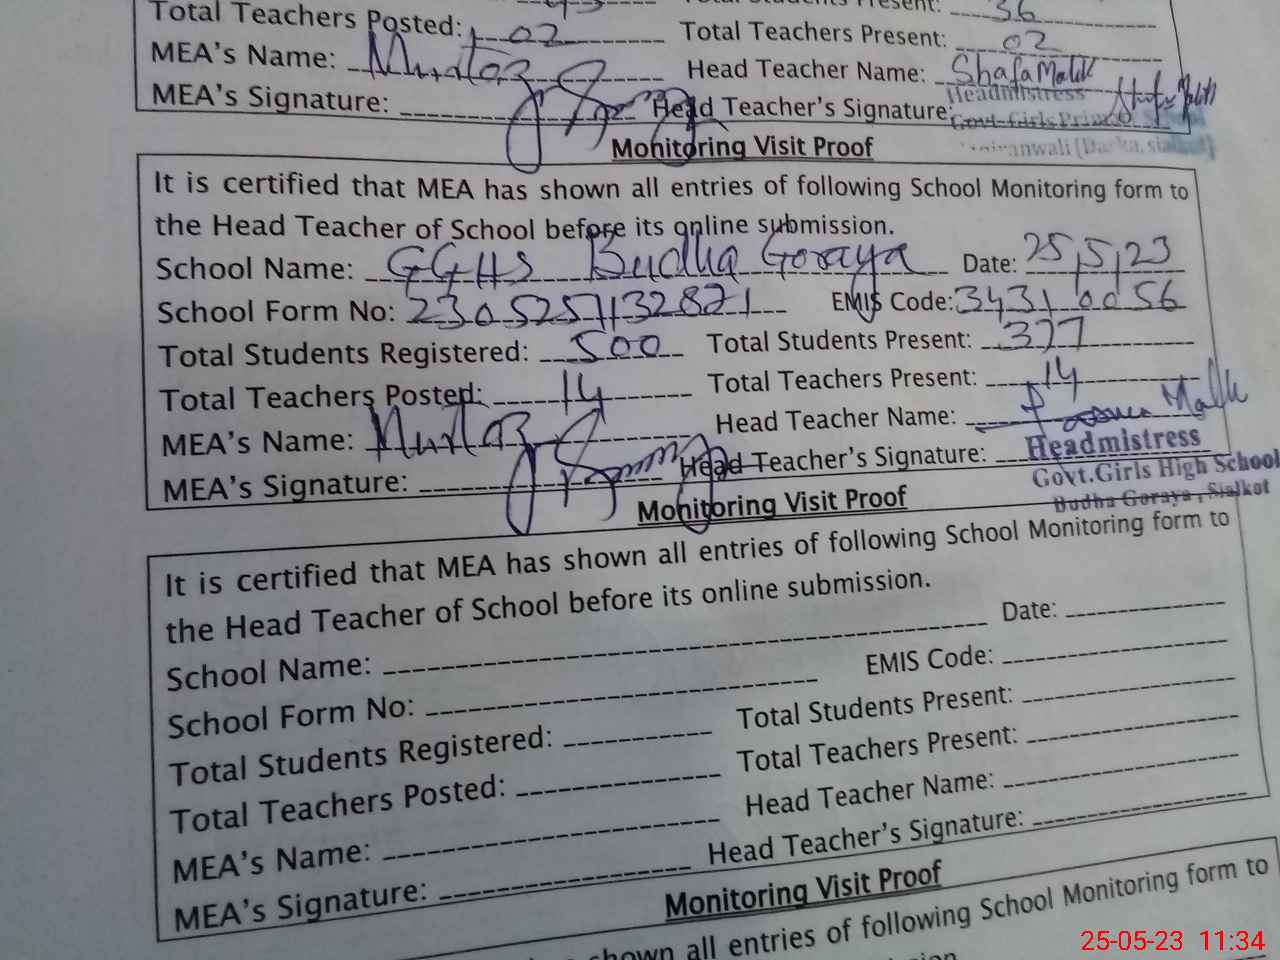 Total Teachers Posted: 02 Total Teachers Present: 02
MEA's Name: Mumtaz Head Teacher Name: Shafa Malik
MEA's Signature: Head Teacher's Signature:
Headmistress
Govt. Girls
Monitoring Visit Proof
It is certified that MEA has shown all entries of following School Monitoring form to
the Head Teacher of School before its online submission.
School Name: GGHS Budha Goraya Date: 25,5,23
School Form No: EMIS Code: 34310056
Total Students Registered: 500 Total Students Present: 377
Total Teachers Posted: 14 Total Teachers Present: 14
MEA's Name: Mumtaz Head Teacher Name: Malik
MEA's Signature: Head Teacher's Signature:
Headmistress
Govt.Girls High School
Budha Goraya, Sialkot
Monitoring Visit Proof
It is certified that MEA has shown all entries of following School Monitoring form to
the Head Teacher of School before its online submission.
School Name: Date:
School Form No: EMIS Code:
Total Students Registered: Total Students Present:
Total Teachers Posted: Total Teachers Present:
MEA's Name: Head Teacher Name:
MEA's Signature: Head Teacher's Signature:
Monitoring Visit Proof
shown all entries of following School Monitoring form to
25-05-23 11:34